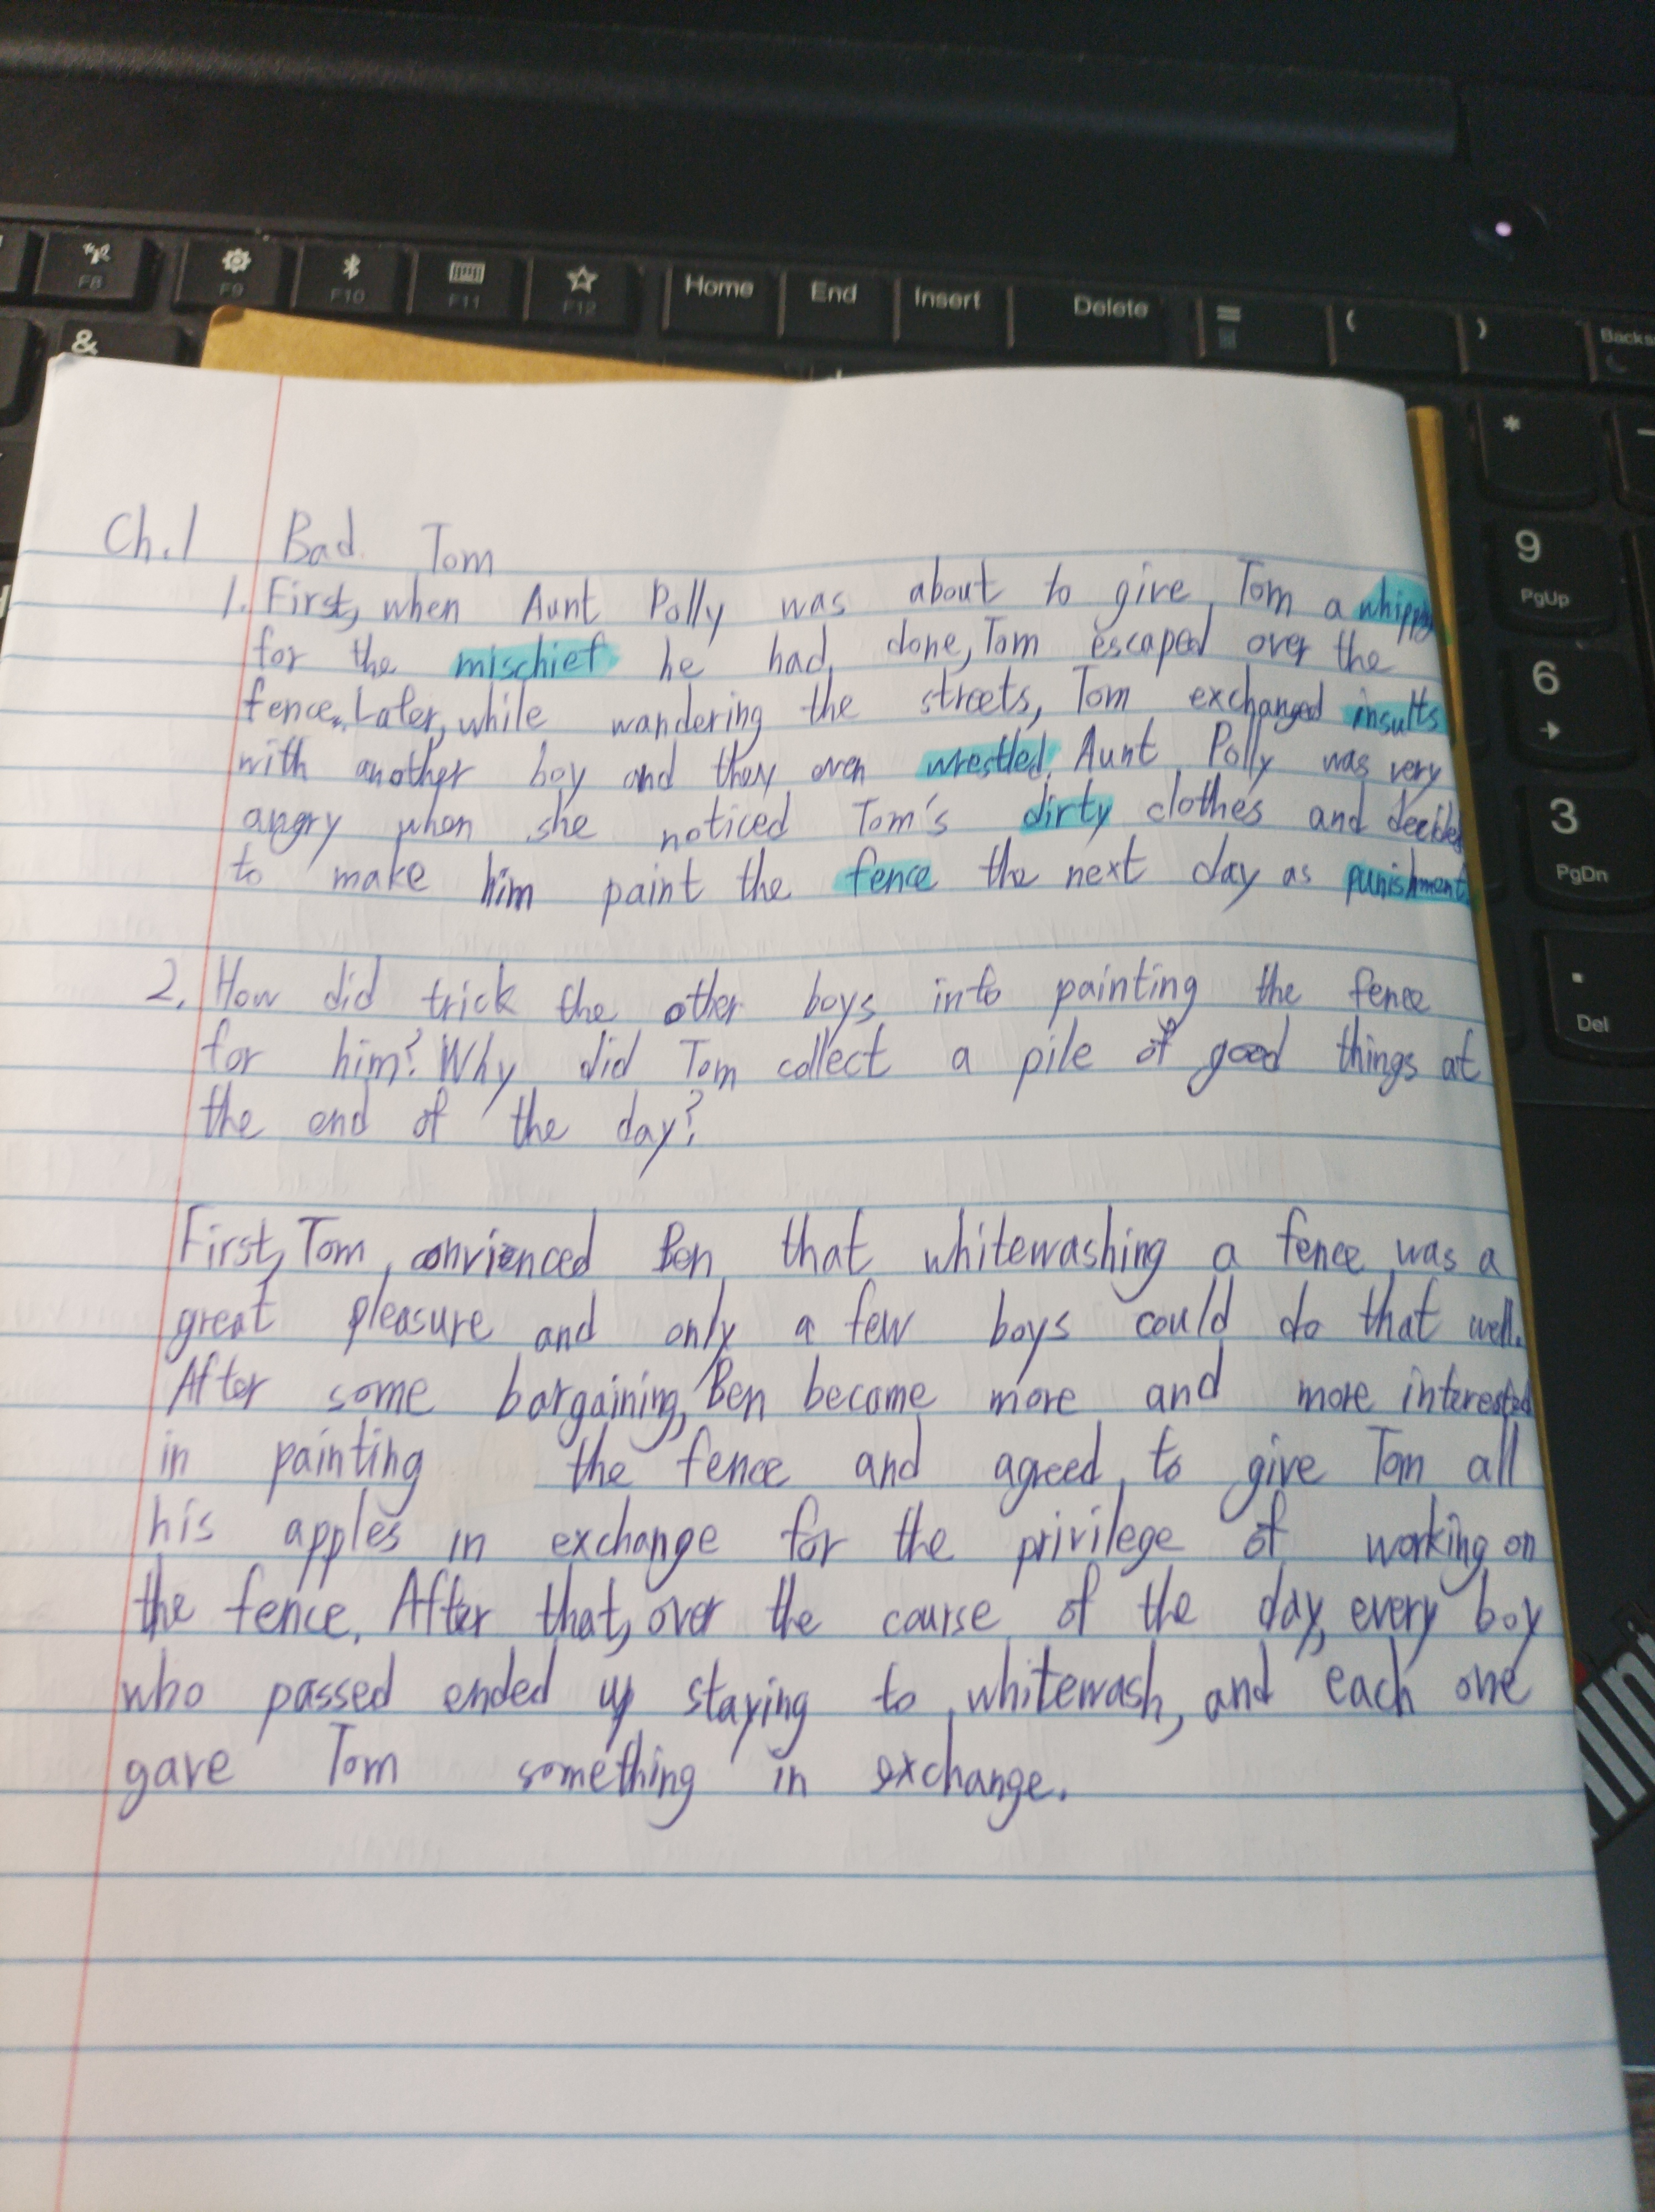 F8
F9
F10
F11
F12
Home
End
Insert
Delete
=
(
)
Backs
&
*
9
PgUp
6
3
PgDn
.
Del
Ch.1 Bad Tom
1. First, when Aunt Polly was about to give Tom a
for the mischief he had done, Tom escaped over the
fence. Later, while wandering the streets, Tom exchanged insults
with another boy and they even wrestled. Aunt Polly was very
angry when she noticed Tom's dirty clothes and decided
to make him paint the fence the next day as punishment
2. How did trick the other boys into painting the fence
for him? Why did Tom collect a pile of good things at
the end of the day?
First, Tom convienced Ben that whitewashing a fence was a
great pleasure and only a few boys could do that well.
After some bargaining, Ben become more and more interested
in painting the fence and agreed to give Tom all
his apples in exchange for the privilege of working on
the fence. After that, over the course of the day, every boy
who passed ended up staying to whitewash, and each one
gave Tom something in exchange.